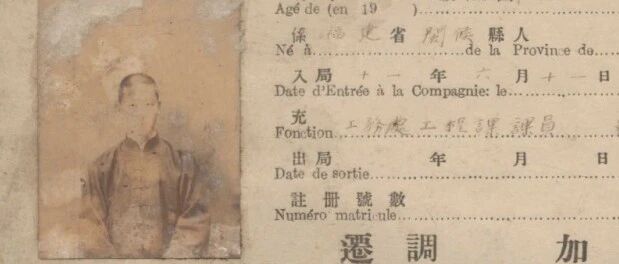 Agé de (en 19 )
係 福建 省 閩侯 縣人
Né à de la Province de
入局 十一 年 六 月 十一 日
Date d'Entrée à la Compagnie: le
充 工務處工程課課員
Fonction
出局 年 月 日
Date de sortie
註冊號數
Numéro matricule
遷調 加